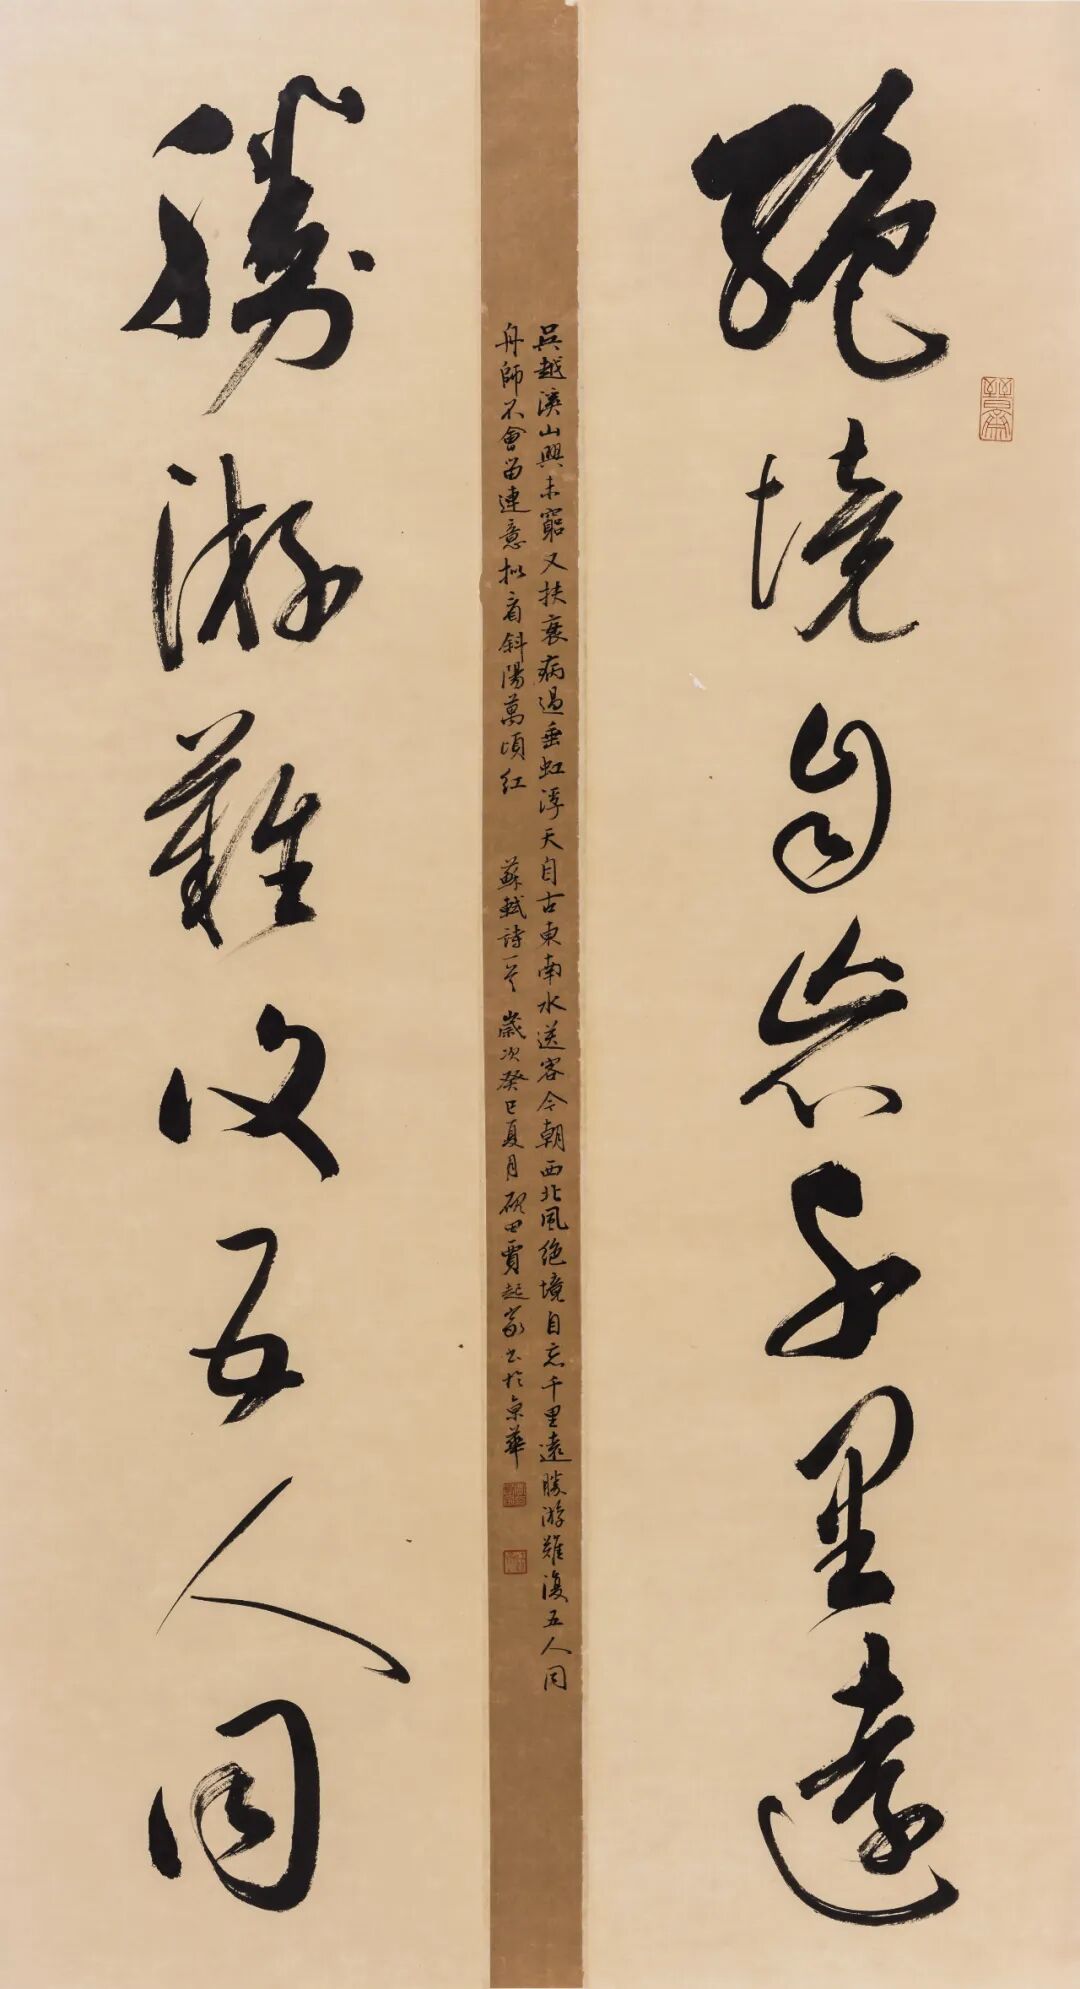 絶境自忘千里遠
吳越溪山興未窮又扶衰病過垂虹浮天自古東南水送客今朝西北風絶境自忘千里遠勝游難復五人同
舟師不會留連意拟看斜陽萬頃红 蘇軾詩一首 歲次癸巳夏月 砚田賈起家书於京華
勝游難復五人同